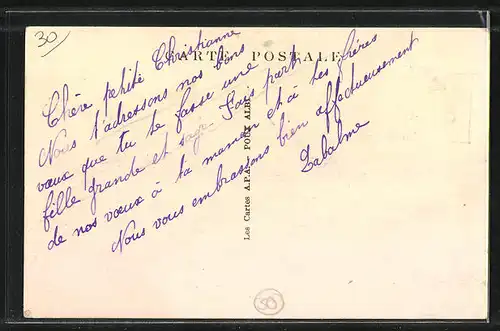 30
CARTE POSTALE
Chère petite Christianne
Nous t'adressons nos bons
vœux que tu te fasse une
fille grande et sage Fais part
de nos vœux à ta maman et à tes frères
Nous vous embrassons bien affectueusement
Les Cartes A.P.A. POUX ALBI